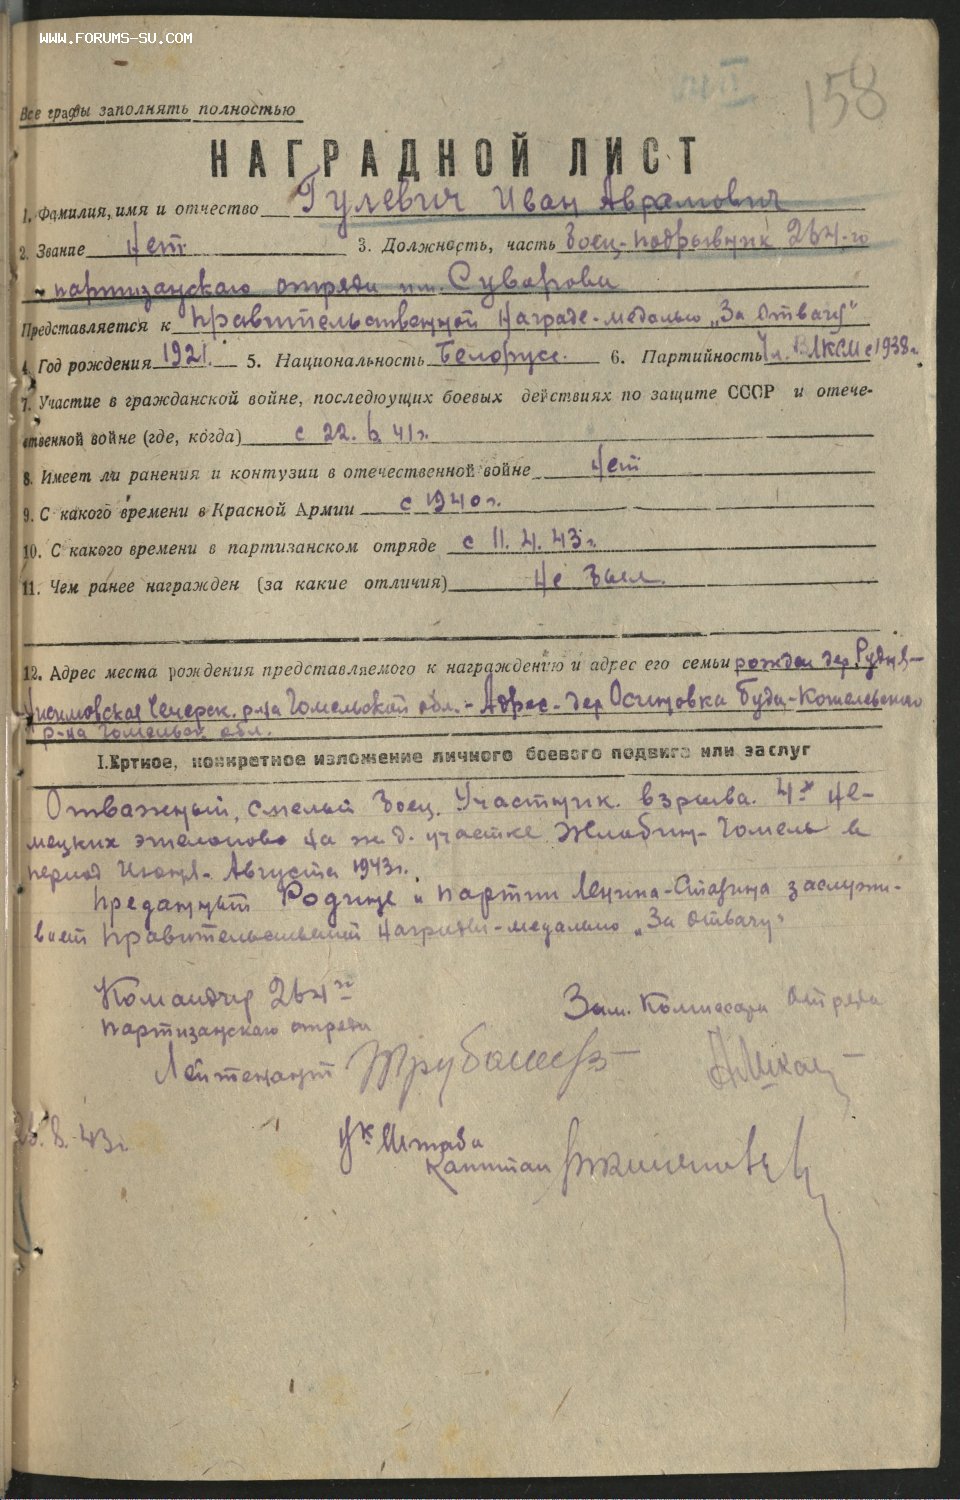 WWW.FORUMS-SU.COM
158
Все графы заполнять полностью
НАГРАДНОЙ ЛИСТ
1. Фамилия, имя и отчество Гулевич Иван Аврамович
2. Звание Нет 3. Должность, часть Боец-подрывник 264-го
партизанского отряда им. Суворова
Представляется к Правительственной Награде-медалью „За Отвагу"
4. Год рождения 1921. 5. Национальность Белорусс. 6. Партийность Чл. ВЛКСМ с 1938г.
7. Участие в гражданской войне, последюущих боевых действиях по защите СССР и отече-
ственной войне (где, когда) с 22. 6 41г.
8. Имеет ли ранения и контузии в отечественной войне Нет
9. С какого времени в Красной Армии с 1940г.
10. С какого времени в партизанском отряде с 11. 4. 43г.
11. Чем ранее награжден (за какие отличия) Не был.
12. Адрес места рождения представляемого к награждению и адрес его семьи рожден дер. Рудня-
Чечерск. р-на Гомельской обл. - Адрес - дер Осиновка Буда-Кошелевского
р-на Гомельск обл.
I. Крткое, конкретное изложение личного боевого подвига или заслуг
Отважный, смелый боец. Участник. взрыва. 4х Не-
мецких эшелонов На ж.д. участке Жлобин-Гомель в
период Июня-Августа 1943г.
Преданный Родине и партии Ленина-Сталина заслужи-
вает Правительственной Награды-медалью „За отвагу"
Командир 264го
партизанского отряда
Лейтенант
Зам. Комиссара Отряда
8. 43г.
Штаба
Капитан